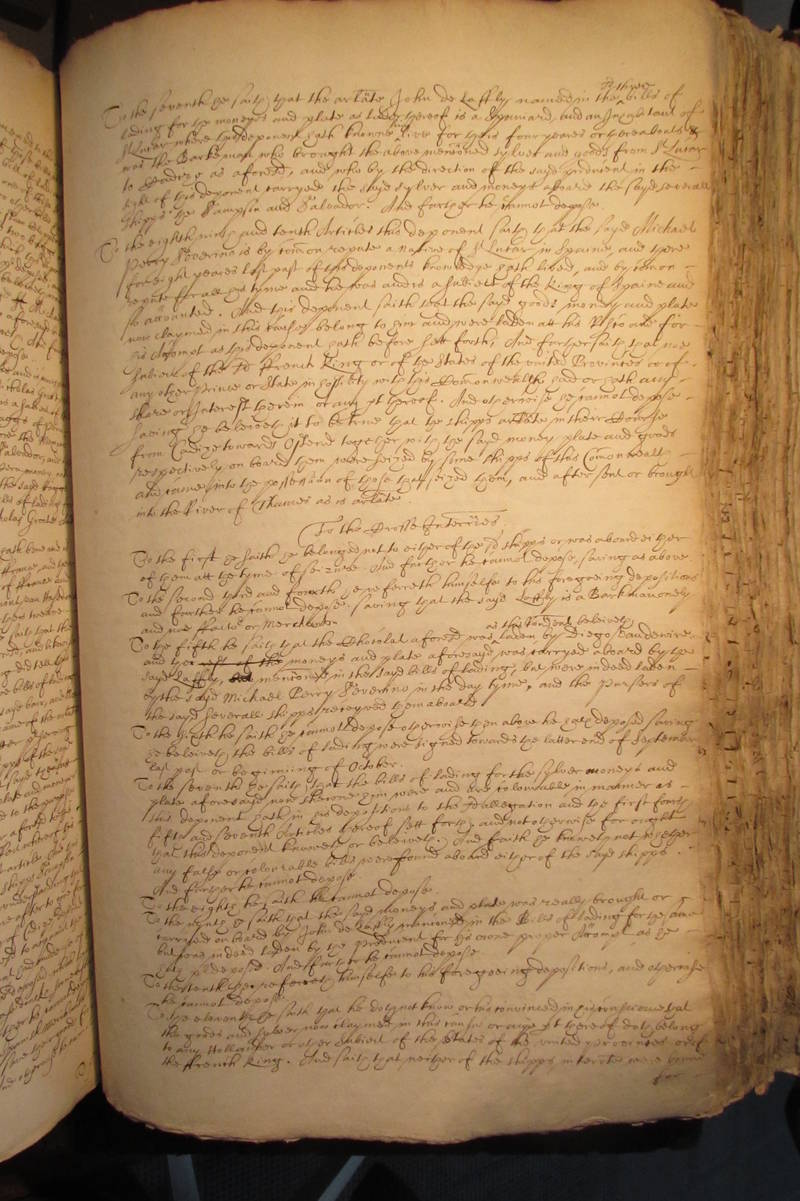 To the seventh hee saith that the arlate John de Laffly named in the bills of
lading for the moneys and plate as lader thereof is a Spaniard, and an Inhabitant of
St Lucar where this deponent hath knowne him live for theis foure yeares or thereabouts &
was the Barkeman who brought the above mentioned sylver and goods from St Lucar
to as aforesd, and who by the direction of the sayd producent in the
sight of this deponent carryed the sayd sylver and moneys aboard the sayd severall
shipps the Sampson and Salvador. And further he cannot depose.
To the eighth nineth and tenth Articles this deponent saith that the sayd Michael
Perry Severino is by comon repute a native of St Lucar in Spaine, and there
for eight yeares last past of this deponents knowledge hath lived, and by comon
repute for all his tyme and hee was and is a subiect of the King of Spaine and
so accounted. And this deponent saith that the sayd goods money and plate
now claymed in this cause belong to him and were laden att his Risgo and for
his Accompt as this deponent hath before sett forth, And further saith that noe
subiect of the ffrench King or of the States of the united Provinces or of
any other Prince or State in hostility with this Comonwealth had or hath any
share or Interest therein or any pt thereof. And otherwise he cannot depose
saving he beleiveth it to be true that the shipps arlate in their Course
from Cadiz towards Ostend together with the sayd money plate and goods
respectively on board them were seized by some shipps of this Comonwealth
and came into the possession of those that seized them, and after sent or brought
into the River of Thames as is arlate
To the Crosse Interries
To the first he saith he belonged not to either of the sd shipps or was aboard either
of them att the tyme of seizure. And further he cannot depose, saving as above
To the second third and fourth he referreth himselfe to his foregoeing depositions
and further he cannot depose. saving that the sayd Laffly is a Barkman onely
and noe ffactor or Merchant.
as this rendent beleiveth
To the fifth he saith that the Chocolat aforesd was laden by Diego
and the rest of the moneys and plate aforesayd was carryed aboard by the
sayd Laffly, mencioned in the sayd bills of lading, but were indeed laden
by the sayd Michael Perry Severino in the day tyme, and the Pursers of
the sayd severall shipps receyved them aboard
To the sixth he saith he cannot depose otherwise then above he hath deposed saving
he beleiveth the bills of lading were signed towards the latter end of September
last past or beginning of October.
To the seventh he saith that the bills of lading for the sylver moneys and
plate aforesayd now shewne him were and are colourable in manner as
this deponent hath in his depositions to the Allegation and the first fourth
fifth and seventh Articles thereof sett forth, and not otherwise for ought
that this deponent knoweth or beleiveth. And saith he knoweth not whether
any false or colourable bills were found aboard either of the sayd shipps.
And further he cannot depose.
To the eighth he saith he cannot depose.
To the nineth he saith that the sayd moneys and plate was really brought or
carryed on board by John de Laffly mentioned in the Bills of lading for the same
but was indeed laden by the producent for his owne proper Accompt as he
hath pdeposed. And further he cannot depose
To the tenth hee referreth himselfe to his foregoeing depositions, and otherwise
he cannot depose
To the eleventh he saith that he doth not know or is convinced in his conscience that
the goods and sylver now claymed in this cause or any pt thereof doth belong
to any Hollander or other subiect of the States of the united provinces or of
the ffrench King. And saith that neither of the shipps interrate were bound
for